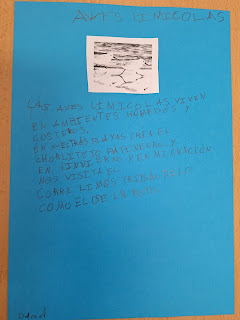 AVES LIMICOLAS
LAS AVES LIMICOLAS VIVEN
EL AMBIENTES HUMEDOS Y
COSTEROS.
EN NUESTRAS PLAYAS CRIA EL
CHORLITEJO PATINEGRO Y
EN INVIERNO Y EN MIGRACION
NOS VISITA EL
CORRELIMOS TRIDACTILO
COMO EL DE LA